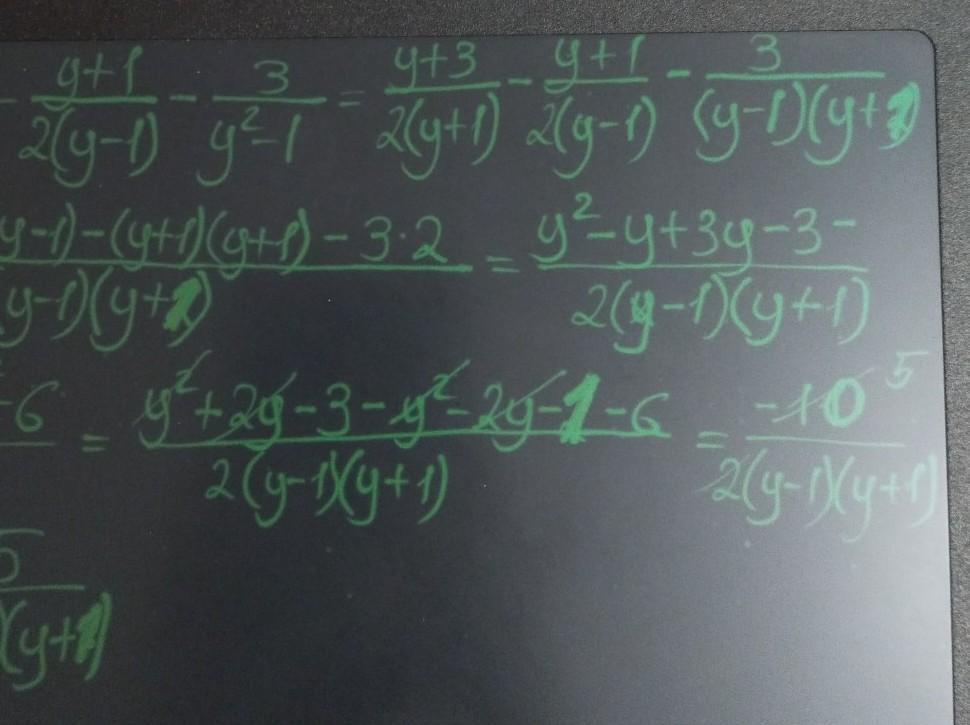 - (y+1)/(2(y-1)) - 3/(y²-1) = (y+3)/(2(y+1)) - (y+1)/(2(y-1)) - 3/((y-1)(y+1)
y-1)-(y+1)(y+1)-3·2 / (y-1)(y+1) = y²-y+3y-3- / 2(y-1)(y+1)
-6 / = (y²+2y-3-y²-2y-1-6)/(2(y-1)(y+1)) = -10 5 / 2(y-1)(y+1)
5 / (y+1)